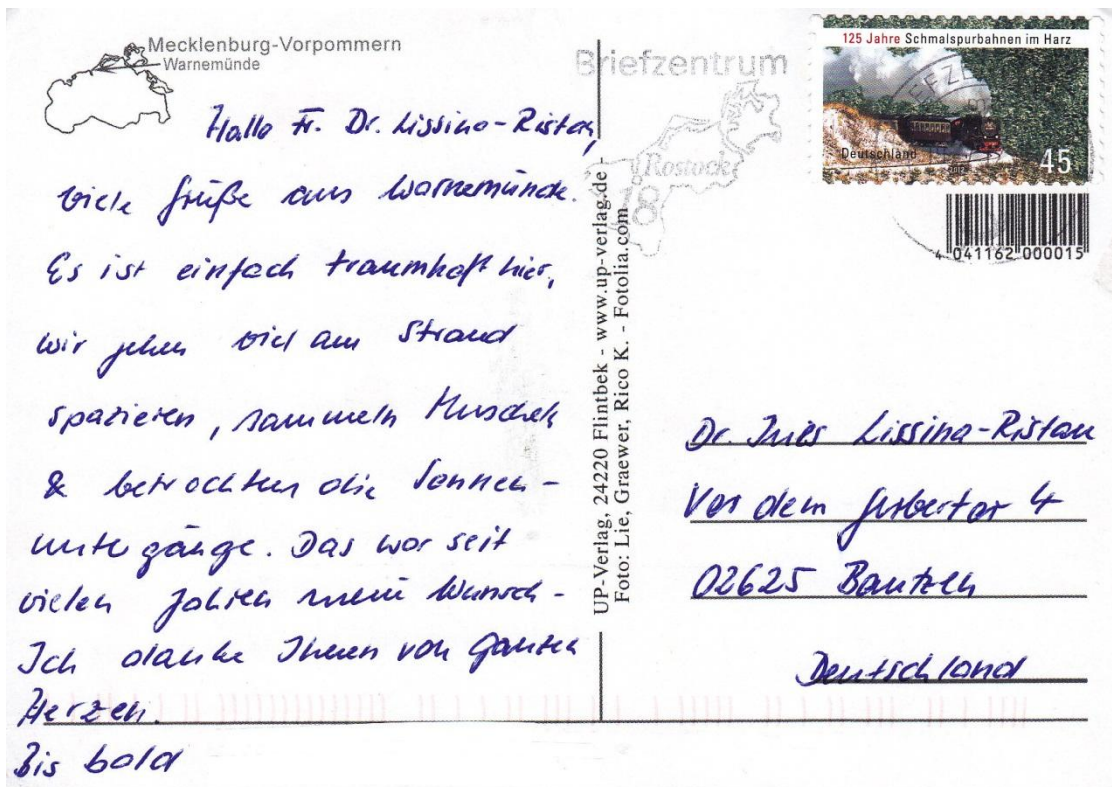 Mecklenburg-Vorpommern
Warnemünde
Hallo Fr. Dr. Lissina-Ristau,
viele Grüße aus Warnemünde.
Es ist einfach traumhaft hier,
wir gehen viel am Strand
spazieren, sammeln Muscheln
& betrachten die Sonnen-
untergänge. Das war seit
vielen Jahren mein Wunsch -
Ich danke Ihnen von ganzen
Herzen.
Bis bald
UP-Verlag, 24220 Flintbek - www.up-verlag.de -
Foto: Lie, Graewer, Rico K. - Fotolia.com
Briefzentrum
Rostock
18
125 Jahre Schmalspurbahnen im Harz
Deutschland
2012
45
4 041162 000015
Dr. Ines Lissina-Ristau
Vor dem Gerbertor 4
02625 Bautzen
Deutschland